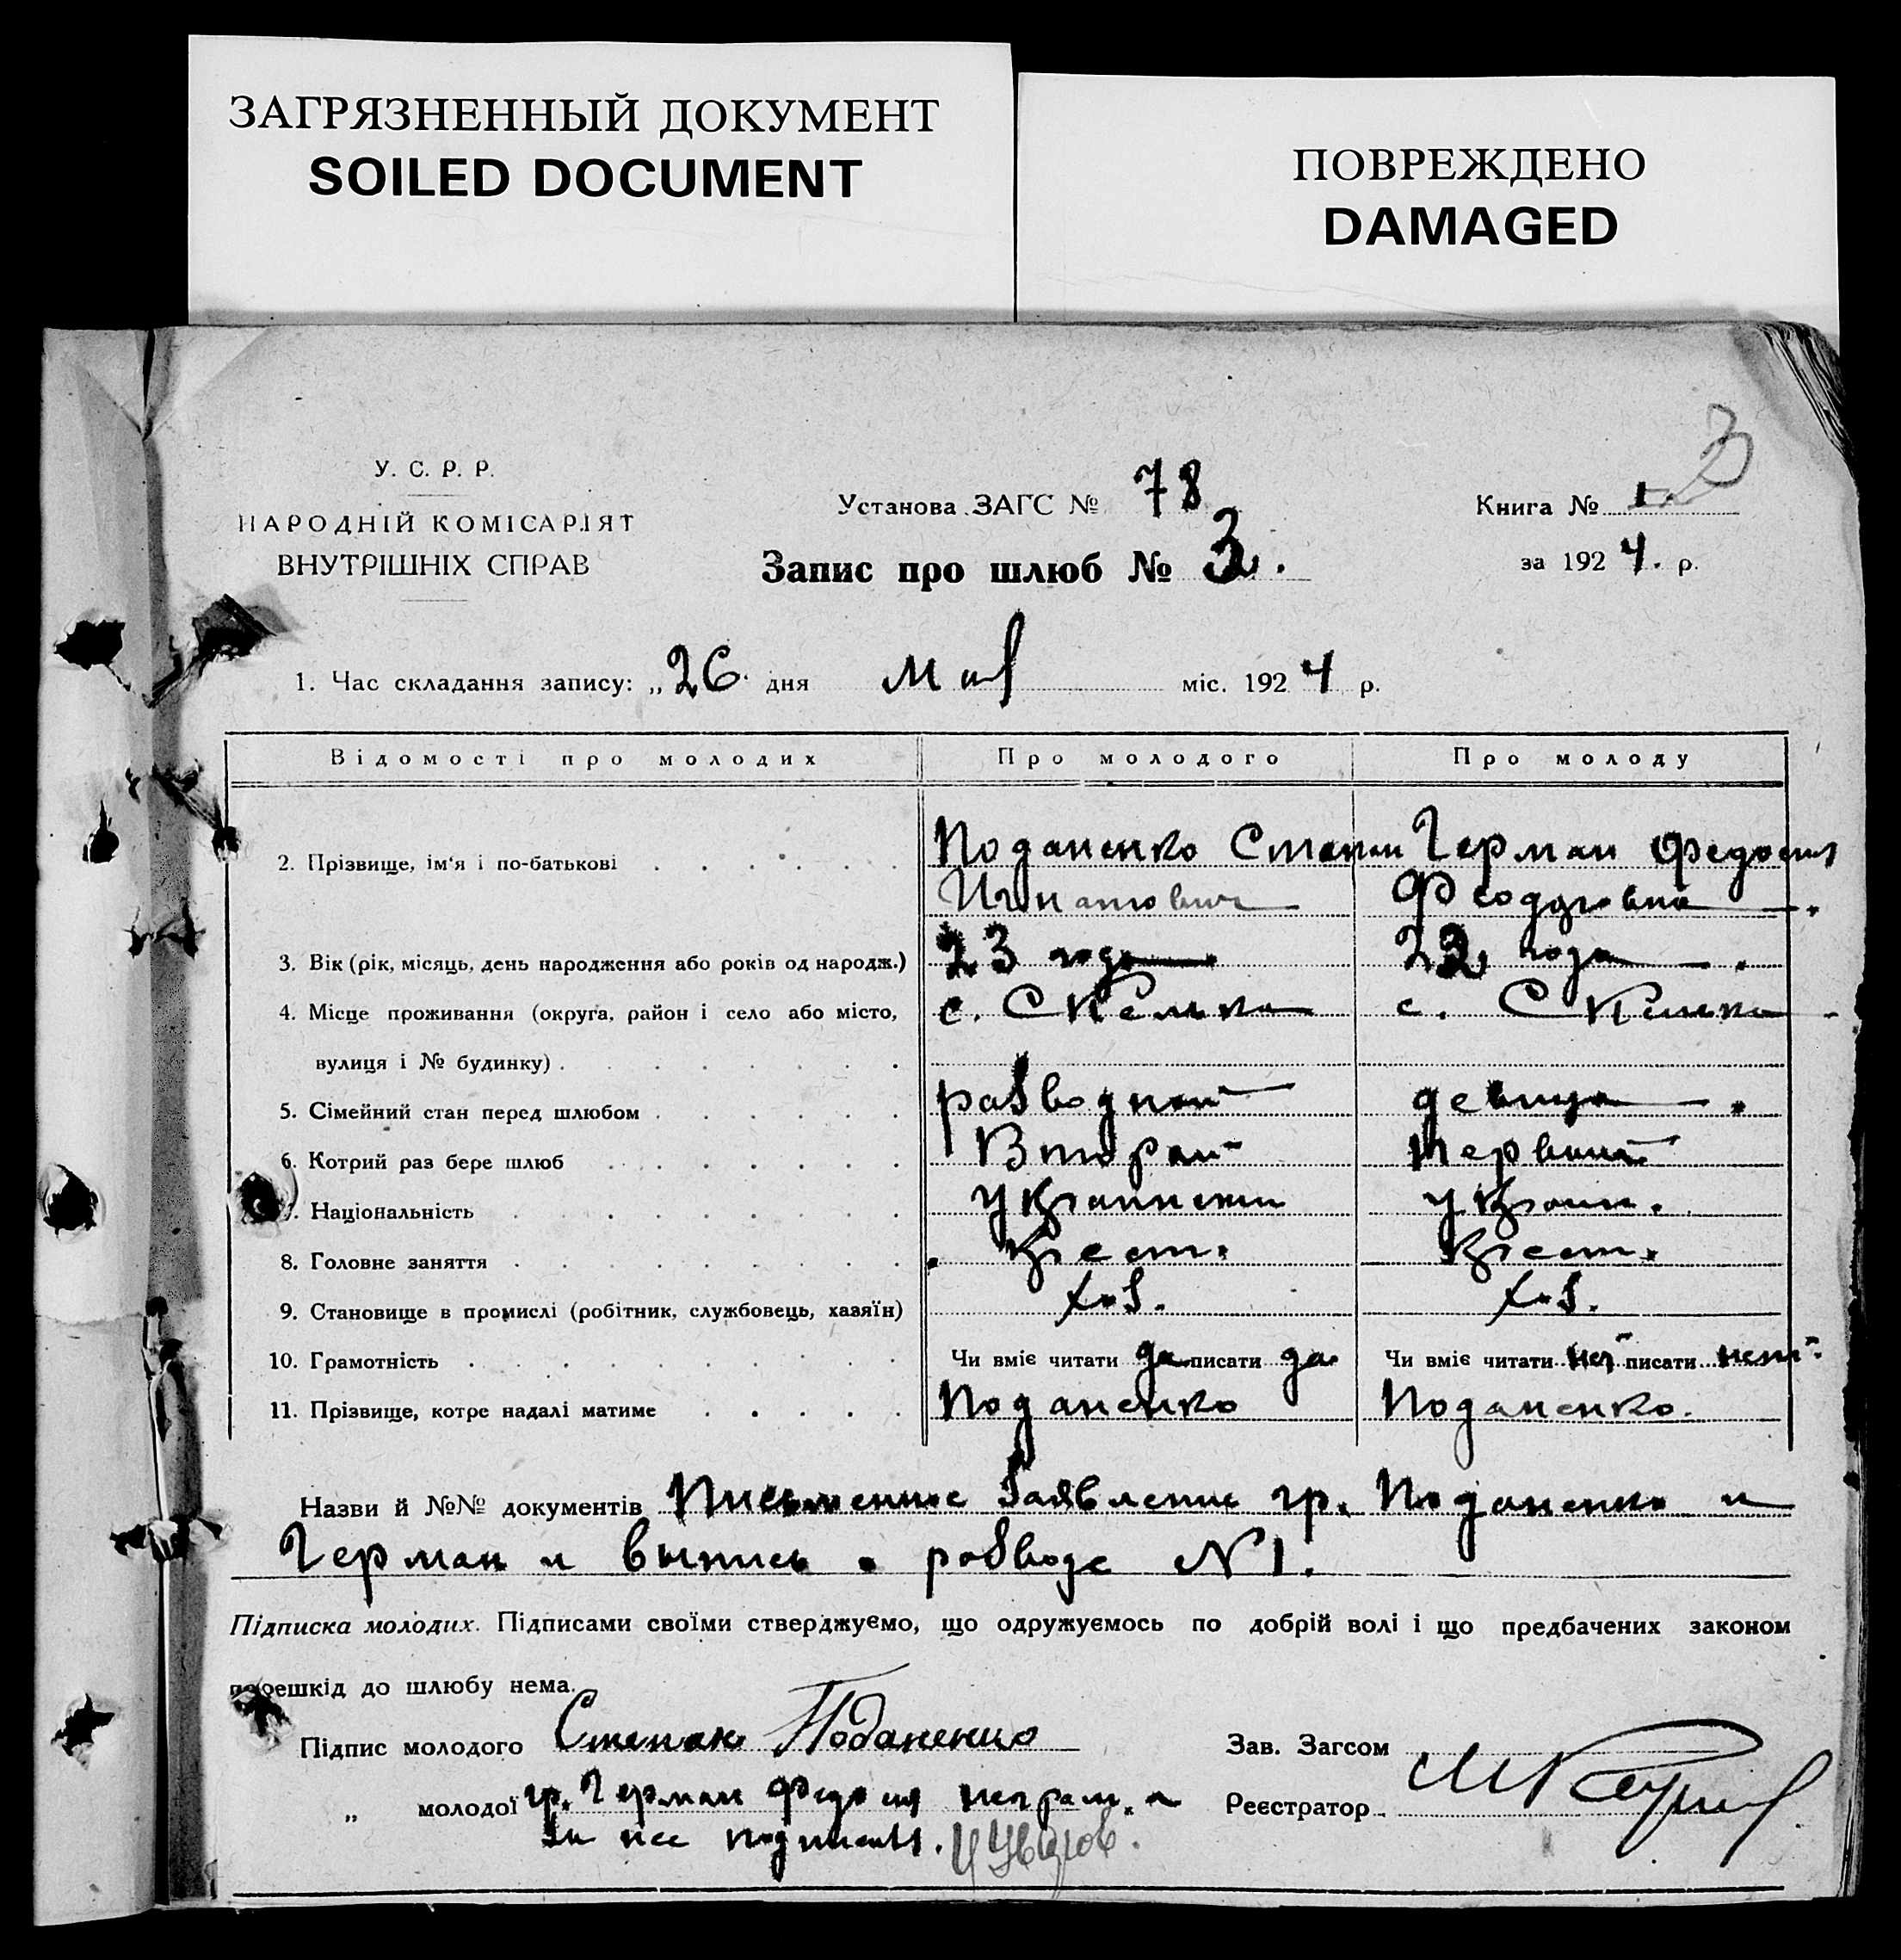 ЗАГРЯЗНЕННЫЙ ДОКУМЕНТ
SOILED DOCUMENT
ПОВРЕЖДЕНО
DAMAGED
3
У. С. Р. Р.
НАРОДНІЙ КОМІСАРІЯТ
ВНУТРІШНІХ СПРАВ
Установа ЗАГС № 78
Запис про шлюб № 3.
Книга № 1.
за 1924. р.
1. Час складання запису: „26. дня мая міс. 1924 р.
Відомості про молодих Про молодого Про молоду
2. Прізвище, ім'я і по-батькові Поданенко Степан Герман Федосия
Игнатович Феодоровна.
3. Вік (рік, місяць, день народження або років од народж.) 23 года 22 года.
4. Місце проживання (округа, район і село або місто, с. Скелька с. Скелька
вулиця і № будинку)
5. Сімейний стан перед шлюбом разводной девица.
6. Котрий раз бере шлюб Второй первый
7. Національність Украинский Украин.
8. Головне заняття Крест. Крест.
9. Становище в промислі (робітник, службовець, хазяїн) хоз. хоз.
10. Грамотність Чи вміє читати да писати да Чи вміє читати нет писати нет
11. Прізвище, котре надалі матиме Поданенко Поданенко.
Назви й №№ документів Письменное Заявление гр. Поданенко и
Герман и выпись о розводе № 1.
Підписка молодих. Підписами своїми стверджуємо, що одружуємось по добрій волі і що предбачених законом
перешкід до шлюбу нема.
Підпис молодого Степан Поданенко Зав. Загсом
„ молодої гр. Герман Федосия неграм. а Реєстратор
за нее подписался.